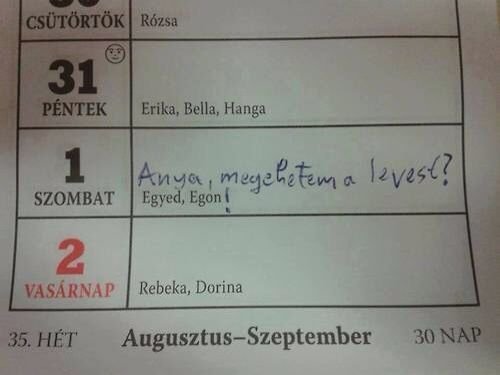 30
CSÜTÖRTÖK Rózsa
31
PÉNTEK Erika, Bella, Hanga
1 Anya, megehetem a levest?
SZOMBAT Egyed, Egon !
2
VASÁRNAP Rebeka, Dorina
35. HÉT Augusztus–Szeptember 30 NAP